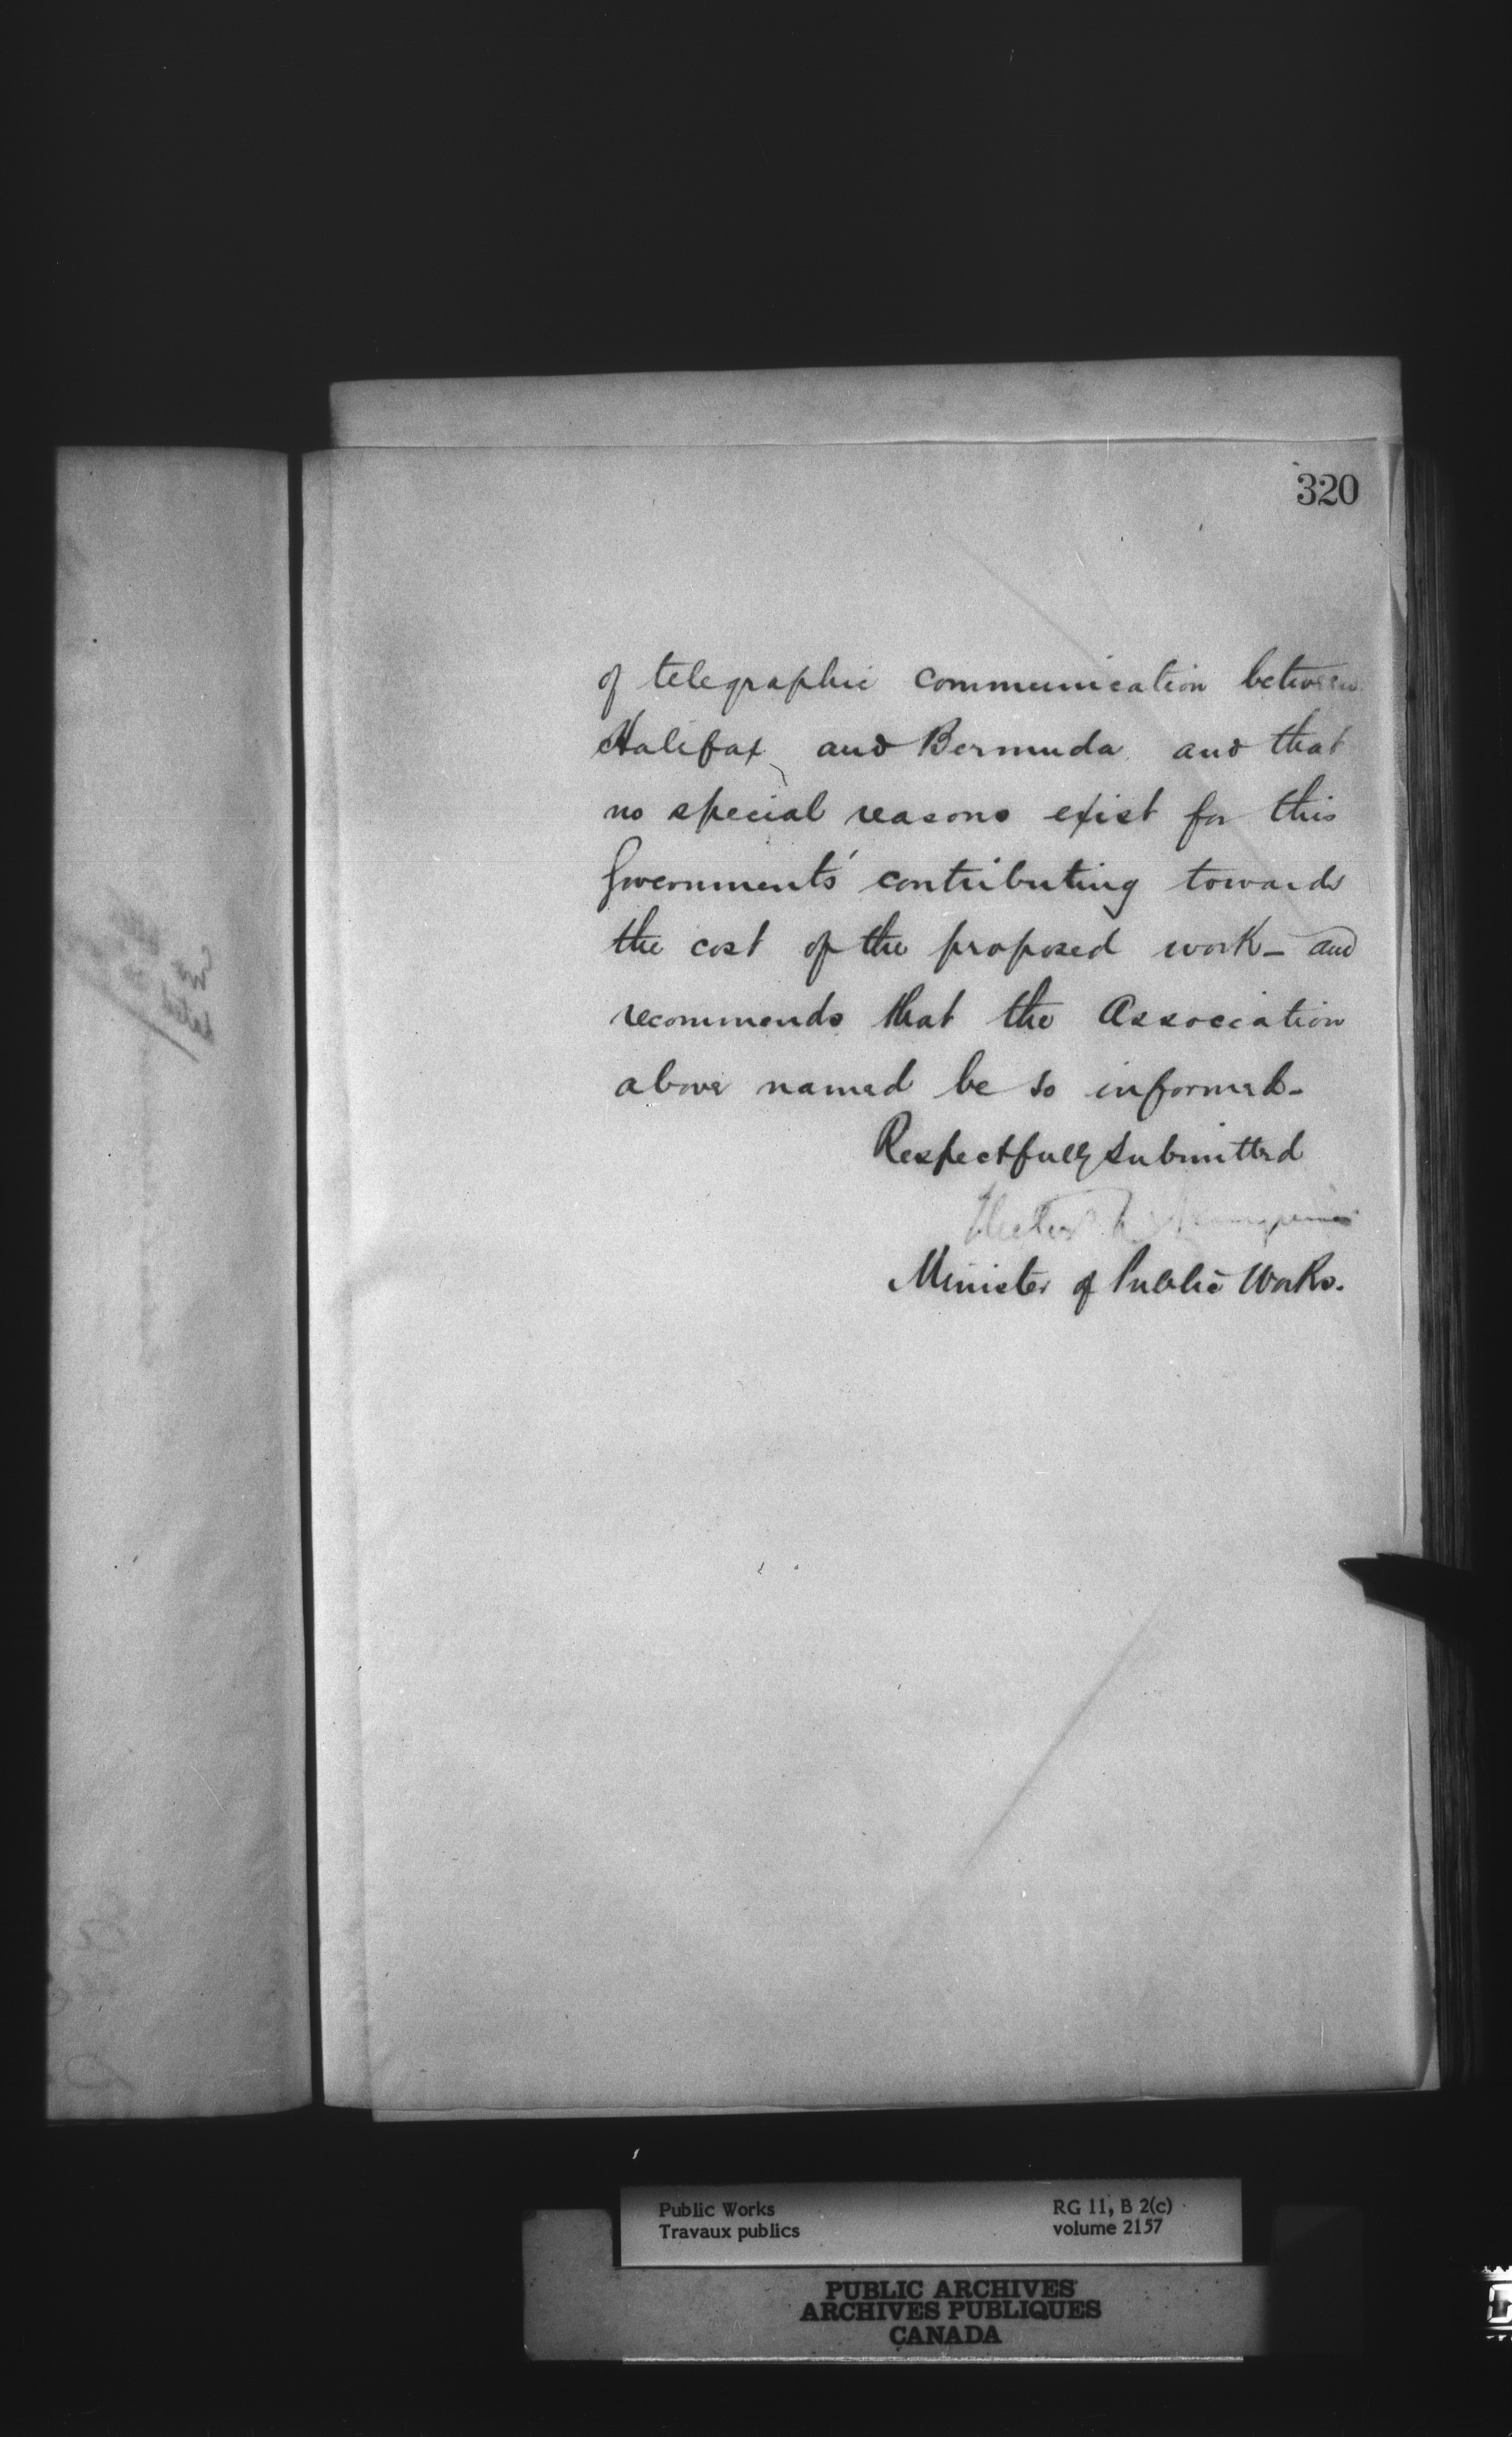 320
of telegraphic communication between
Halifax, and Bermuda and that
no special reasons exist for this
Government's contributing towards
the cost of the proposed work - and
recommends that the Association
above named be so informed -
Respectfully submitted
Hector L
Minister of Public Works.
Public Works
Travaux publics
RG 11, B 2(c)
volume 2157
PUBLIC ARCHIVES
ARCHIVES PUBLIQUES
CANADA